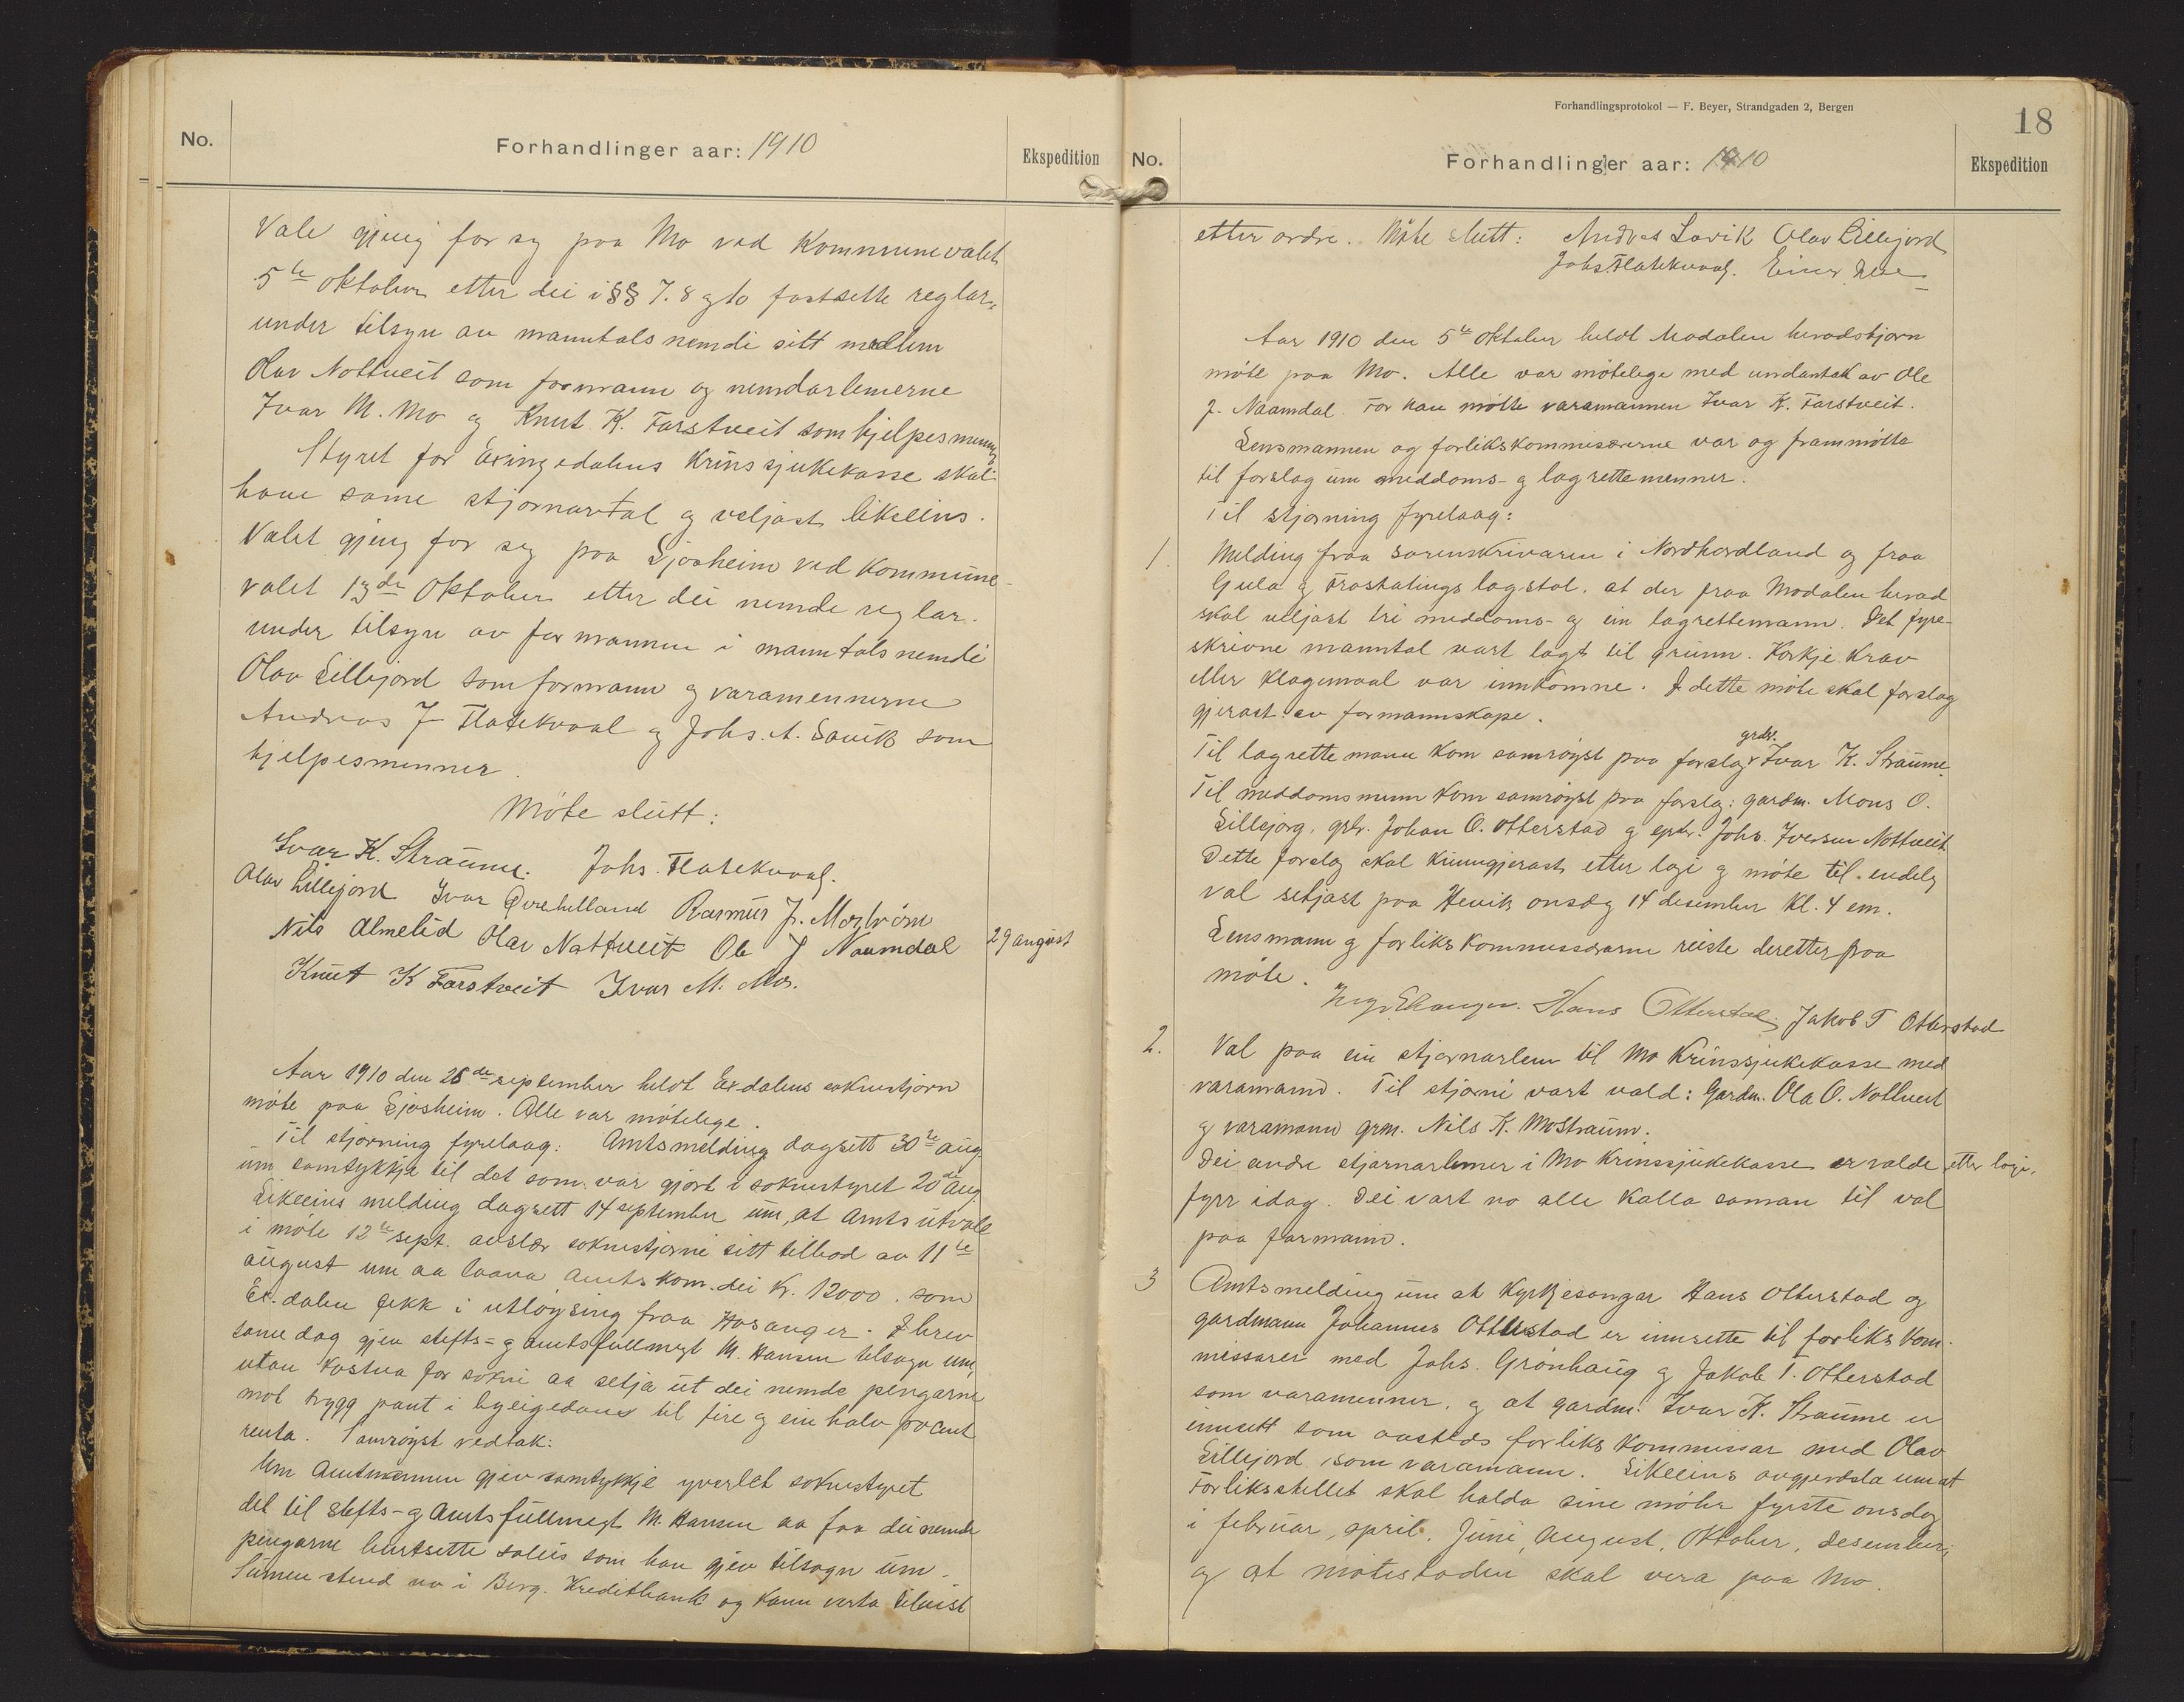 No.
Forhandlinger aar: 1910
Ekspedition
Vale gjeng for sg paa Mo ved Kommunevalet
5te oktober etter dei i §§ 7. 8 g 10 fastsette reglar,
under tilsyn av manntals nemdi sitt medlem
Olav Nottveit som formann og nemdarlemerne
Ivar M. Mo og Knut K. Farstveit som hjelpesmenn
Styret for Eksingedalens Krinssjukekasse skal
have same stjornartal g veljast likeeins.
Valet gjeng for seg paa Sjoaheim ved Kommune-
valet 13de Oktober etter dei nemde reglar.
under tilsyn av formannen i manntalsnemdi
Olav Lillejord som formann g varamennerne
Andreas J Flatekvaal g Johs. A. Lavik som
hjelpesmenner.
Møte slutt:
Ivar K. Straume. Johs. Flatekvaal.
Olav Lillejord Ivar Øvrehelland Rasmus J. Mostrøm
Nils Almelid Olav Nottveit Ole J Naamdal
29 august
Knut K Farstveit Ivar M. Mo.
Aar 1910 den 26de september heldt Exdalens soknestjorn
møte paa Sjoaheim. Alle var møtelege.
Til stjorning fyrelaag: Amtsmelding dagsett 30te aug
um samtykkje til det som var gjort i soknestyret 20de aug
Likeeins melding dagsett 14 september um, at Amtsutvale
i møte 12te sept. avslær soknestjorni sitt tilbod av 11te
august um aa laana Amtskom. dei Kr. 12000. som
Ex.dalen fekk i utløysing fraa Hosanger. I brev
same dag gjev stefts- g amtsfullmegt M. Hansen tilsagn um,
utan kostna for sokni aa setja ut dei nemde pengarne
mot trygg pant i byeigedom til fire g ein halv procent
renta. Samrøyst vedtak:
Um Amtmannen gjev samtykkje yverlet soknestyret
det til stefts- g Amtsfullmegt M. Hansen aa faa dei nemde
pengarne burtsette soleis som han gjev tilsagn um.
Sumen stend no i Berg. Kreditbank og kann verta tilvist
Forhandlingsprotokol — F. Beyer, Strandgaden 2, Bergen
18
No.
Forhandlinger aar: 1910
Ekspedition
etter ordre. Møte slutt: Andres Lavik Olav Lillejord
Johs Flatekvaal. Einar
Aar 1910 den 5te oktober heldt Modalen heradstjorn
møte paa Mo. Alle var møtelege med undantak av Ole
J. Naamdal. For han møtte varamannen Ivar K. Farstveit.
Lensmannen og forlikskommisærerne var og frammøtte
til forslag um meddoms- g lagrettemenner.
Til stjorning fyrelaag:
1. Melding fraa sorenskrivaren i Nordhordland og fraa
Gula g Frostatings lagstol, at der fraa Modalen herad
skal veljast tri meddoms- g ein lagrettemann. Det fyre-
skrivne manntal vart lagt til grunn. Korkje krav
eller klagemaal var innkomne. I dette møte skal forslag
gjerast av formannskape.
Til lagrettemann kom samrøyst paa forslag grdbr. Ivar K. Straume.
Til meddomsmenn kom samrøyst paa forslag: gardm. Mons O.
Lillejorg, grbr. Johan O. Otterstad g grbr. Johs. Iversen Nottveit
Dette forslag skal kunngjerast etter logi g møte til endeleg
val setjast paa Henik onsdg 14 desember Kl. 4 em.
Lensmann g forlikskommissærarne reiste deretter fraa
møte.
Hans Otterstad. Jakob T Otterstad
2. Val paa ein stjornarlem til Mo Krinssjukekasse med
varamann. Til stjorni vart vald: Gardm. Ola O. Nottveit
g varamann grm. Nils K. Mostraum.
Dei andre stjornarlemer i Mo Krinssjukekasse er valde etter logi,
fyrr idag. Dei vart no alle kalla saman til val
paa formann.
3 Amtsmelding um at Kyrkjesongar Hans Otterstad og
gardmann Johannes Otterstad er innsette til forlikskom-
missarer med Johs. Grønhaug g Jakob T. Otterstad
som varamenner, g at gardm. Ivar K. Straume er
innsett som aasteds forlikskommissar med Olav
Lillejord som varamann. Likeeins avgjerdsla um at
Forliksstellet skal halda sine møter fyrste onsdag
i februar, april, Juni, August, Oktober, desember;
og at møtestaden skal vera paa Mo.